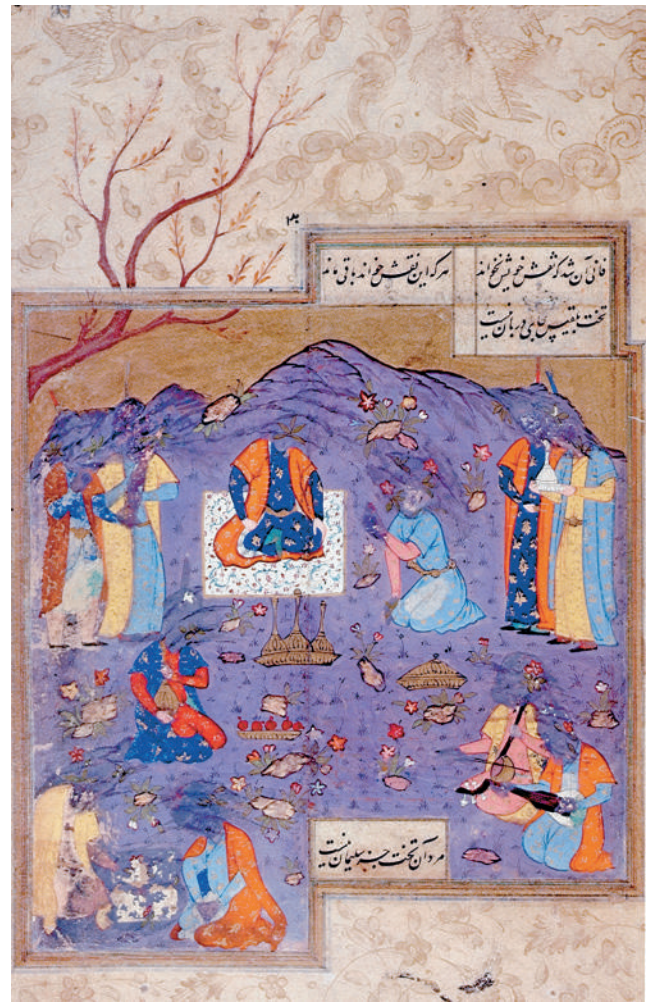 فانی آن شد که نقش خویش نخواند هر که این نقش خواند باقی ماند
تخت بلقیس جای دربان نیست
مرد آن تخت جز سلیمان نیست